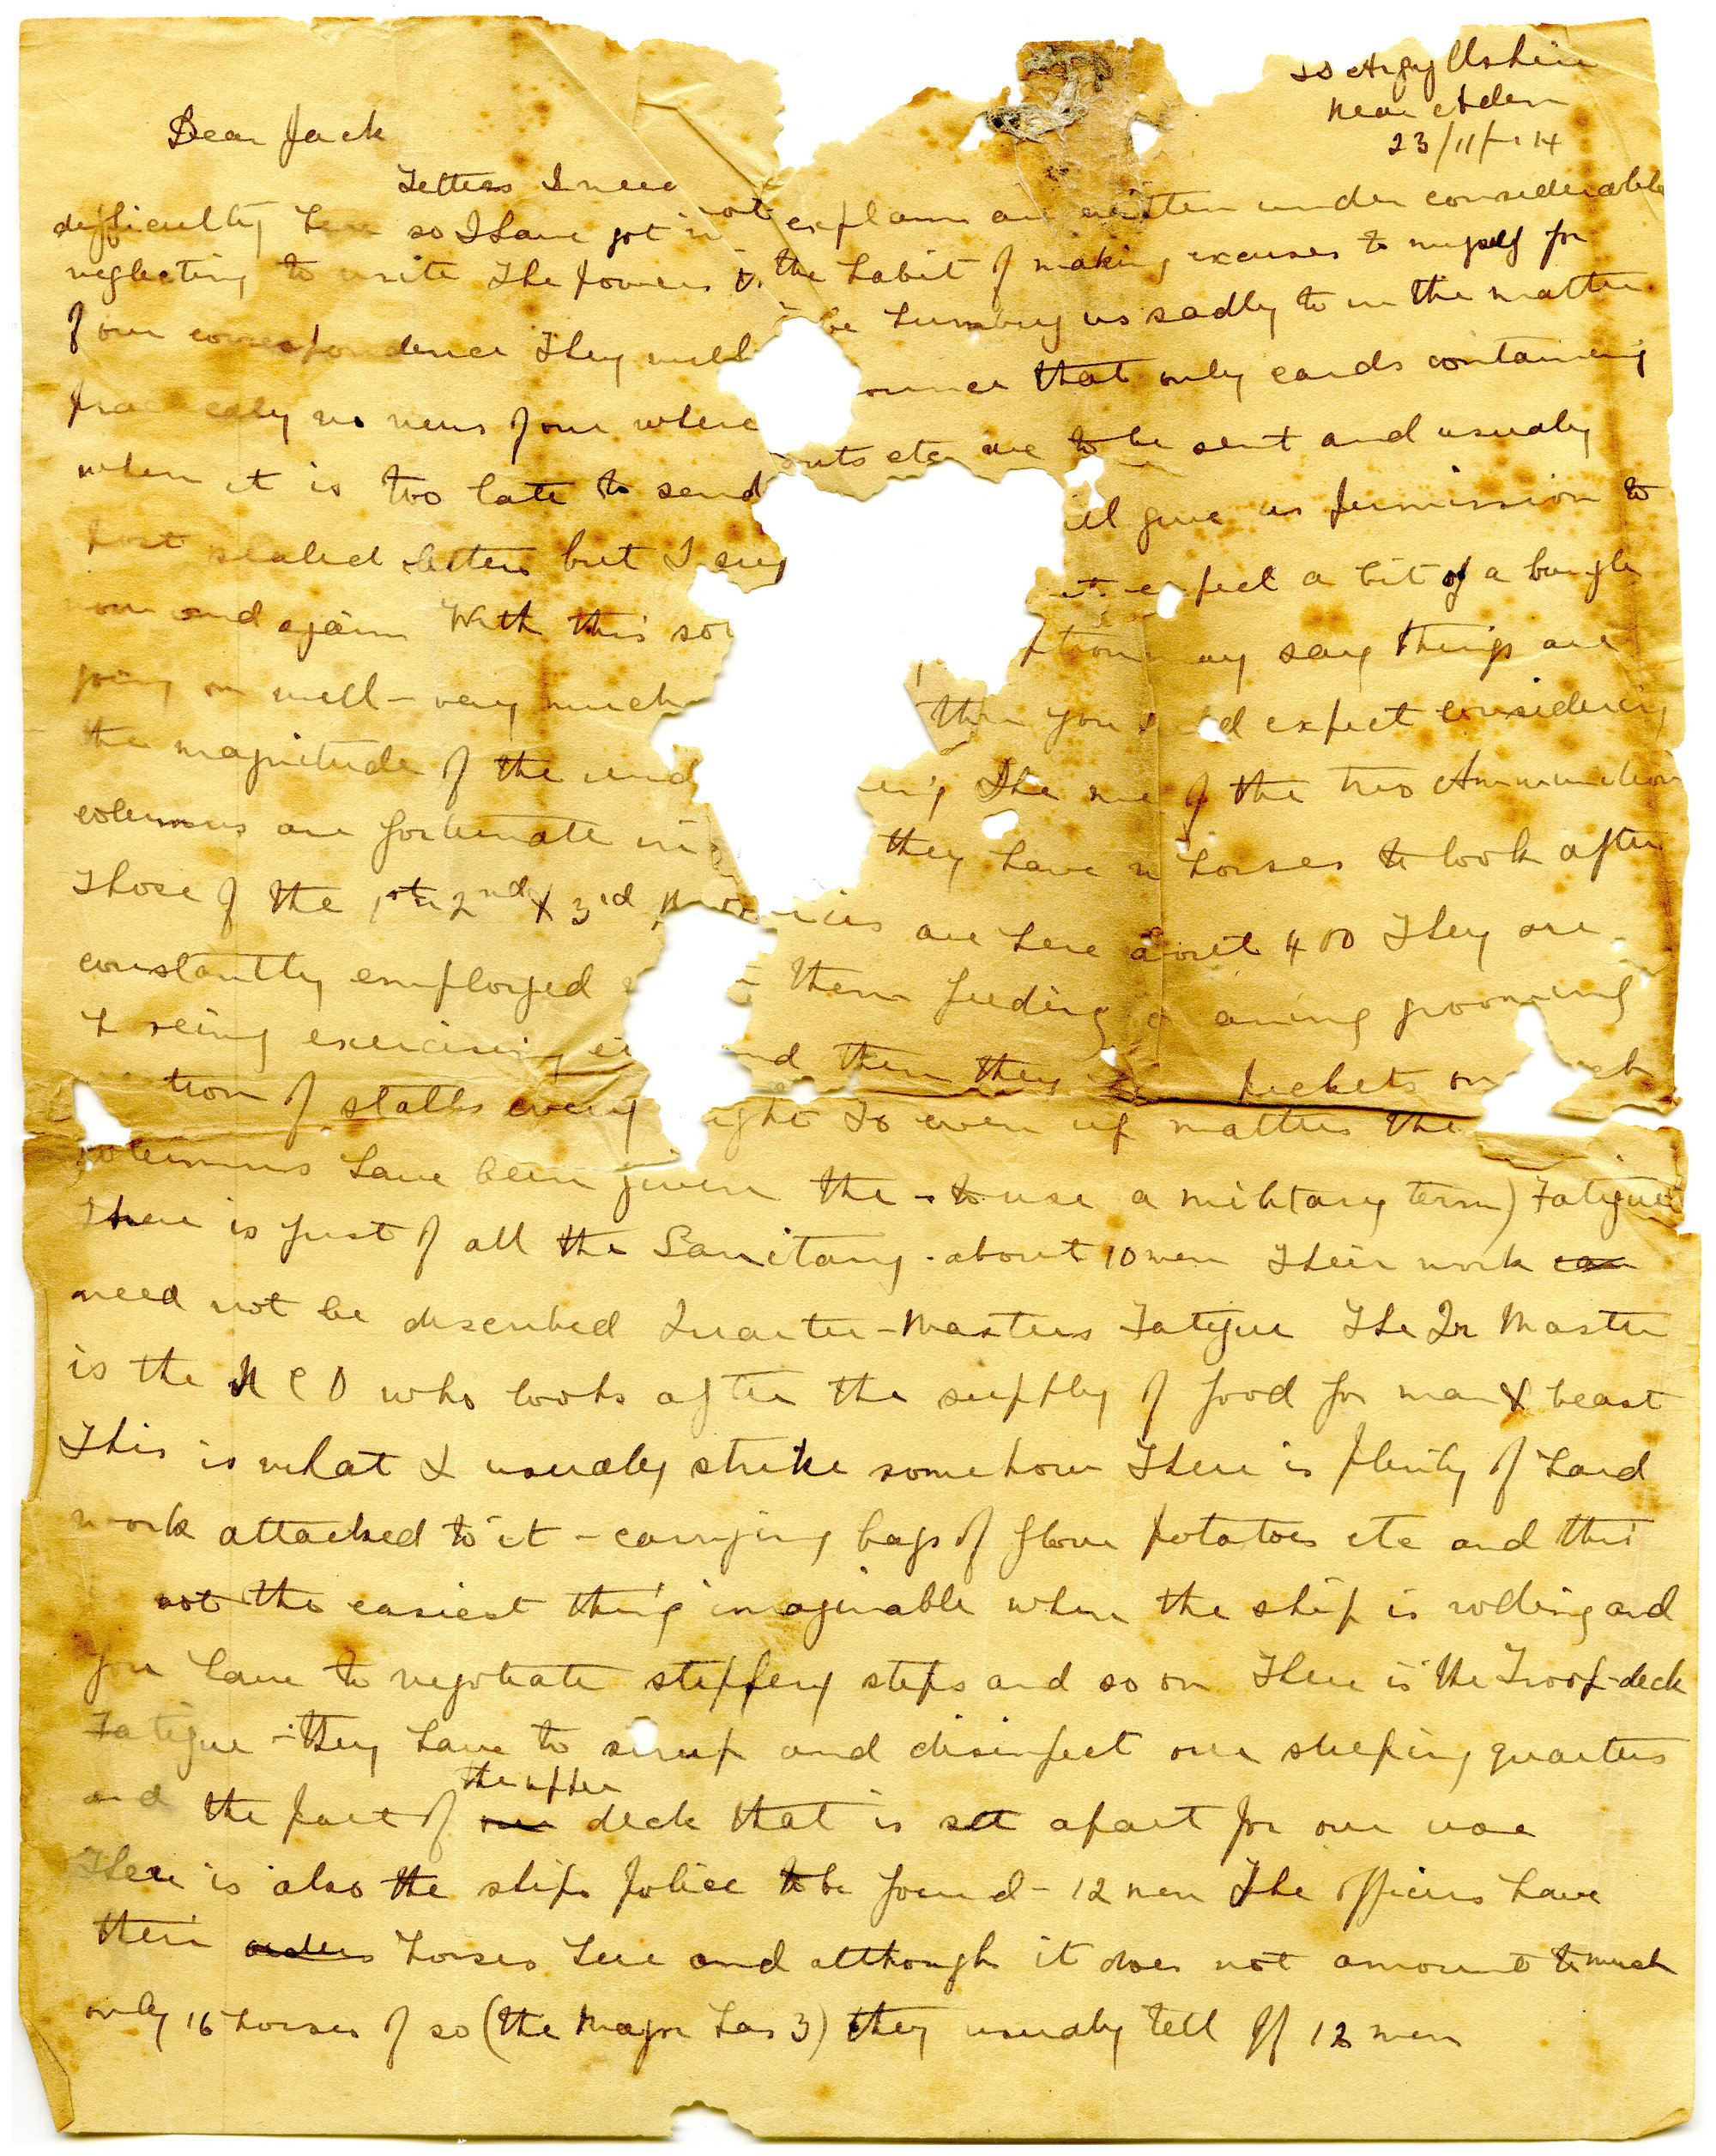 SS Argyllshire
Near Aden
23/11/-14
Dear Jack
Letters I need not explain are written under considerable
difficulty here so I have got in the habit of making excuses to myself for
neglecting to write The powers be humbug us sadly to in the matter
of our correspondence They will ounce that only cards containing
practically no news of our where outs etc are to be sent and usually
when it is too late to send give us permission to
post sealed letters but I feel a bit of a bungle
now and again With this may say things are
going on well - very much than you expect considering
the magnitude of the und ing The men of the two Ammunition
columns are fortunate in they have no horses to look after
Those of the 1st 2nd & 3rd are here about 400 They are
constantly employed them feeding grooming
& seeing exercising and then they pickets on
tion of stalls every ight To even up matters the
columns have been given the - to use a military term) Fatigues
There is first of all the Sanitary - about 10 men Their work
need not be described Quarter-Masters Fatigue The Qr Master
is the N C O who looks after the supply of food for man & beast
This is what I usually strike somehow There is plenty of hard
work attached to it - carrying bags of flour potatoes etc and this
not the easiest thing imaginable when the ship is rolling and
you have to negotiate slippery steps and so on There is the Troop-deck
Fatigue - they have to and disinfect our sleeping quarters
and the part of the upper deck that is set apart for our use
There is also the ships police to be found - 12 men The officers have
their horses here and although it does not amount to much
only 16 horses of so (the Major has 3) they usually tell off 12 men